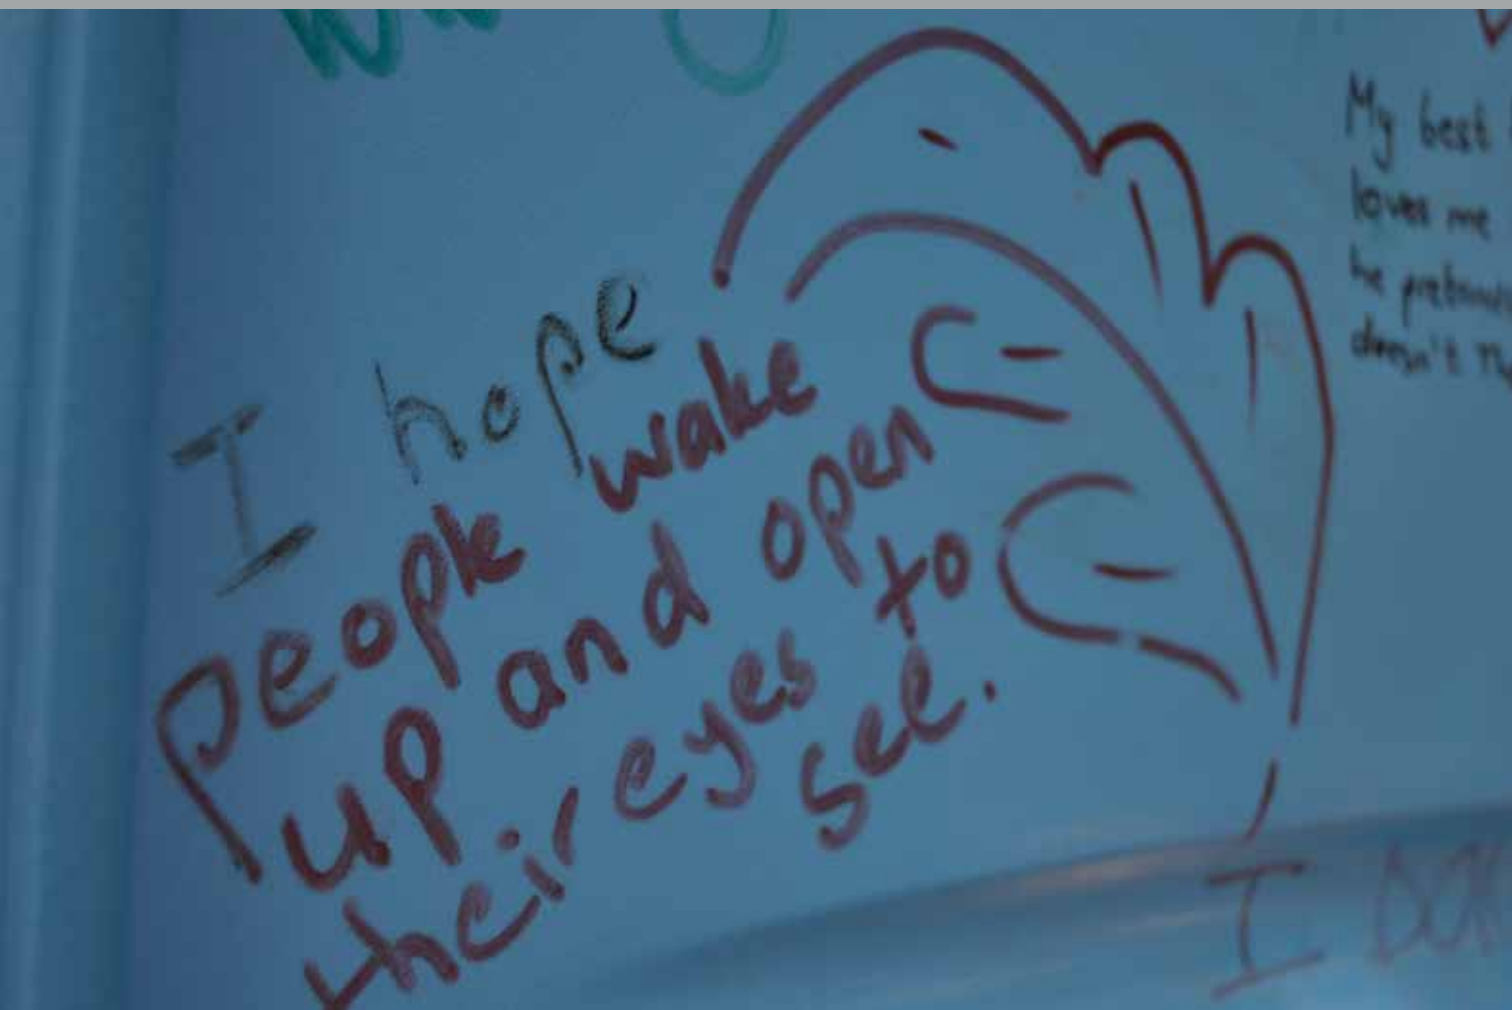 I hope
people wake
up and open
their eyes to
see.
My best
loves me
he
doesn't
I